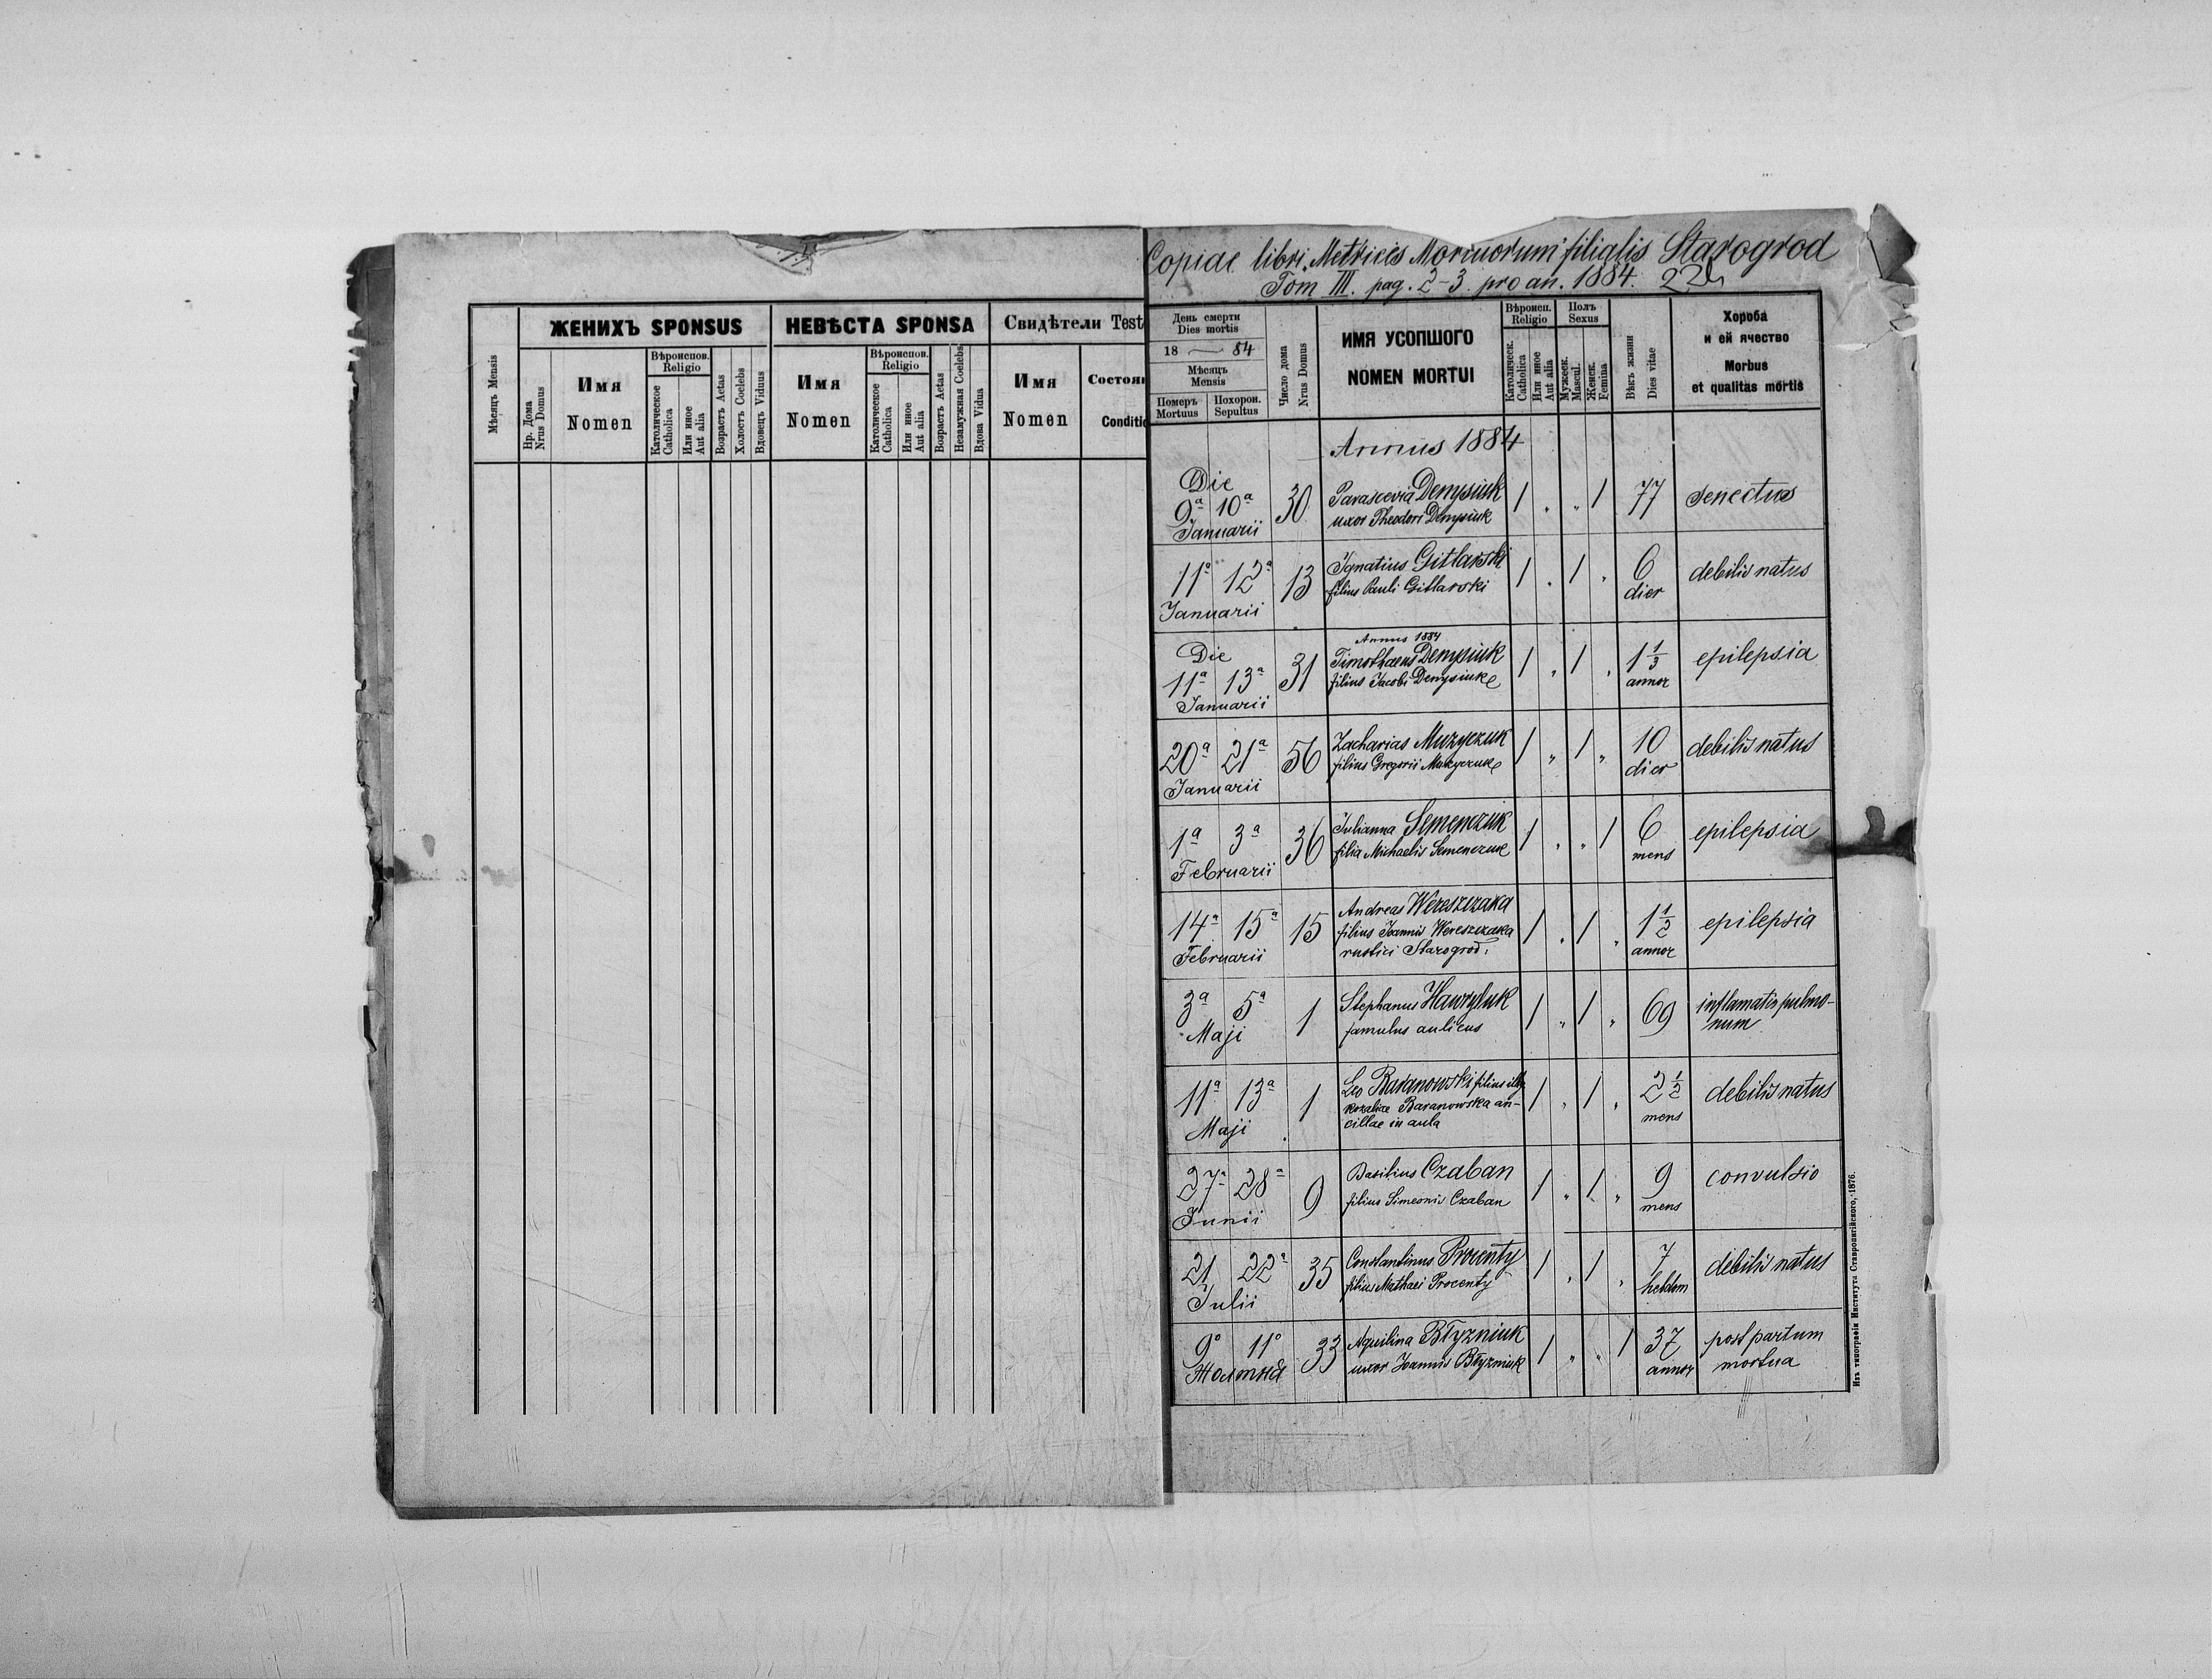 Мѣсяцъ Mensis
ЖЕНИХЪ SPONSUS
Нр. Дома
Nrus Domus
Имя
Nomen
Вѣроиспов.
Religio
Католическое
Catholica
Или иное
Aut alia
Возрастъ Aetas
Холостъ Coelebs
Вдовецъ Viduus
НЕВѢСТА SPONSA
Имя
Nomen
Вѣроиспов.
Religio
Католическое
Catholica
Или иное
Aut alia
Возрастъ Aetas
Незамужная Coelebs
Вдова Vidua
Свидѣтели Test
Имя
Nomen
Состоян
Conditio
Copiae libri Metrices Mortuorum filialis Starogrod
Tom III. pag. 2-3 pro an. 1884.
День смерти
Dies mortis
18 — 84
Мѣсяцъ
Mensis
Померъ
Mortuus
Похорон.
Sepultus
Число дома
Nrus Domus
ИМЯ УСОПШОГО
NOMEN MORTUI
Вѣроисп.
Religio
Католическ.
Catholica
Или иное
Aut alia
Полъ
Sexus
Мужеск.
Mascul.
Женск.
Femina
Вѣкъ жизни
Dies vitae
Хороба
и ей ячество
Morbus
et qualitas mortis
Annus 1884
Die
9ª 10ª 30 Parascevia Denysiuk 1 „ „ 1 77 senectus
Januarii uxor Theodori Denysiuk
11ª 12ª 13 Ignatius Gitlarski 1 „ 1 „ 6 debilis natus
Januarii filius Pauli Gitlarski dier
Annus 1884
Die
11ª 13ª 31 Timothaeus Denysiuk 1 „ 1 „ 1 1/3 epilepsia
Januarii filius Jacobi Denysiuk annor
20ª 21ª 56 Zacharias Muzyczuk 1 „ 1 „ 10 debilis natus
Januarii filius Gregorii Muzyczuk dier
1ª 3ª 36 Julianna Semenczuk 1 „ „ 1 6 epilepsia
Februarii filia Michaelis Semenczuk mens
14ª 15ª 15 Andreas Wereszczaka 1 „ 1 „ 1 1/2 epilepsia
Februarii filius Joannis Wereszczaka annor
rustici Starogrod.
3ª 5ª 1 Stephanus Hawryluk 1 „ 1 „ 69 inflamatio pulmo-
Maji famulus aulicus num
11ª 13ª 1 Leo Baranowski filius illg 1 „ 1 „ 2 1/2 debilis natus
Maji Rozaliae Baranowska an- mens
cillae in aula
27ª 28ª 9 Basilius Czaban 1 „ 1 „ 9 convulsio
Junii filius Simeonis Czaban mens
21 22ª 35 Constantinus Procenty 1 „ 1 „ 7 debilis natus
Julii filius Mathaei Procenty hebdom
9° 11° 33 Aquilina Błyzniuk 1 „ „ 1 37 post partum
Жолтня uxor Joannis Błyzniuk annor mortua
Изъ типографіи Института Ставропигійского, 1876.